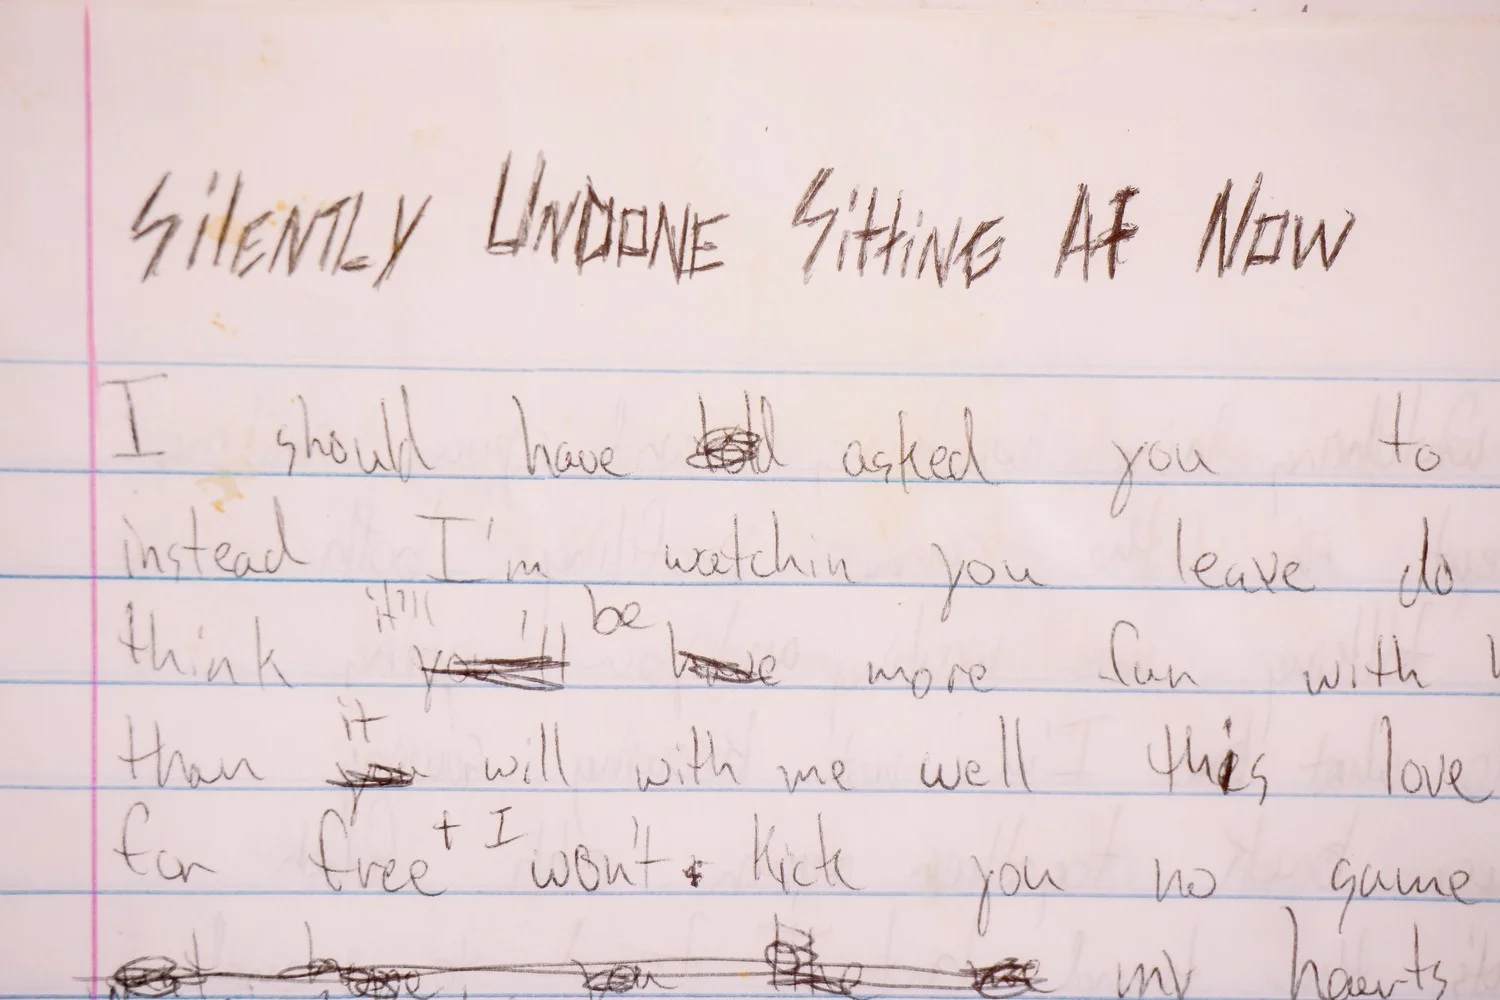 SilENTLY UNDONE SittiNG AF NOW
I should have told asked you to
instead I'm watchin you leave do
it'll be
think you'll have more fun with
it
than you will with me well this love
+ I
for free won't kick you no game
you my haerts